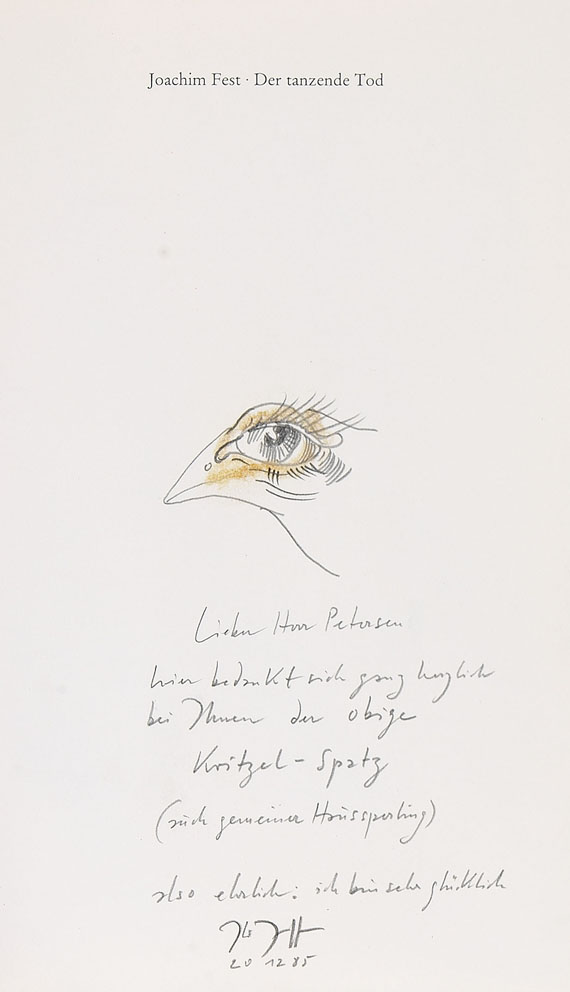 Joachim Fest · Der tanzende Tod
Lieber Herr Petersen
hier bedankt sich ganz herzlich
bei Ihnen der obige
Kritzel-Spatz
(auch gemeiner Haussperling)
also ehrlich: ich bin sehr glücklich
20 12 85